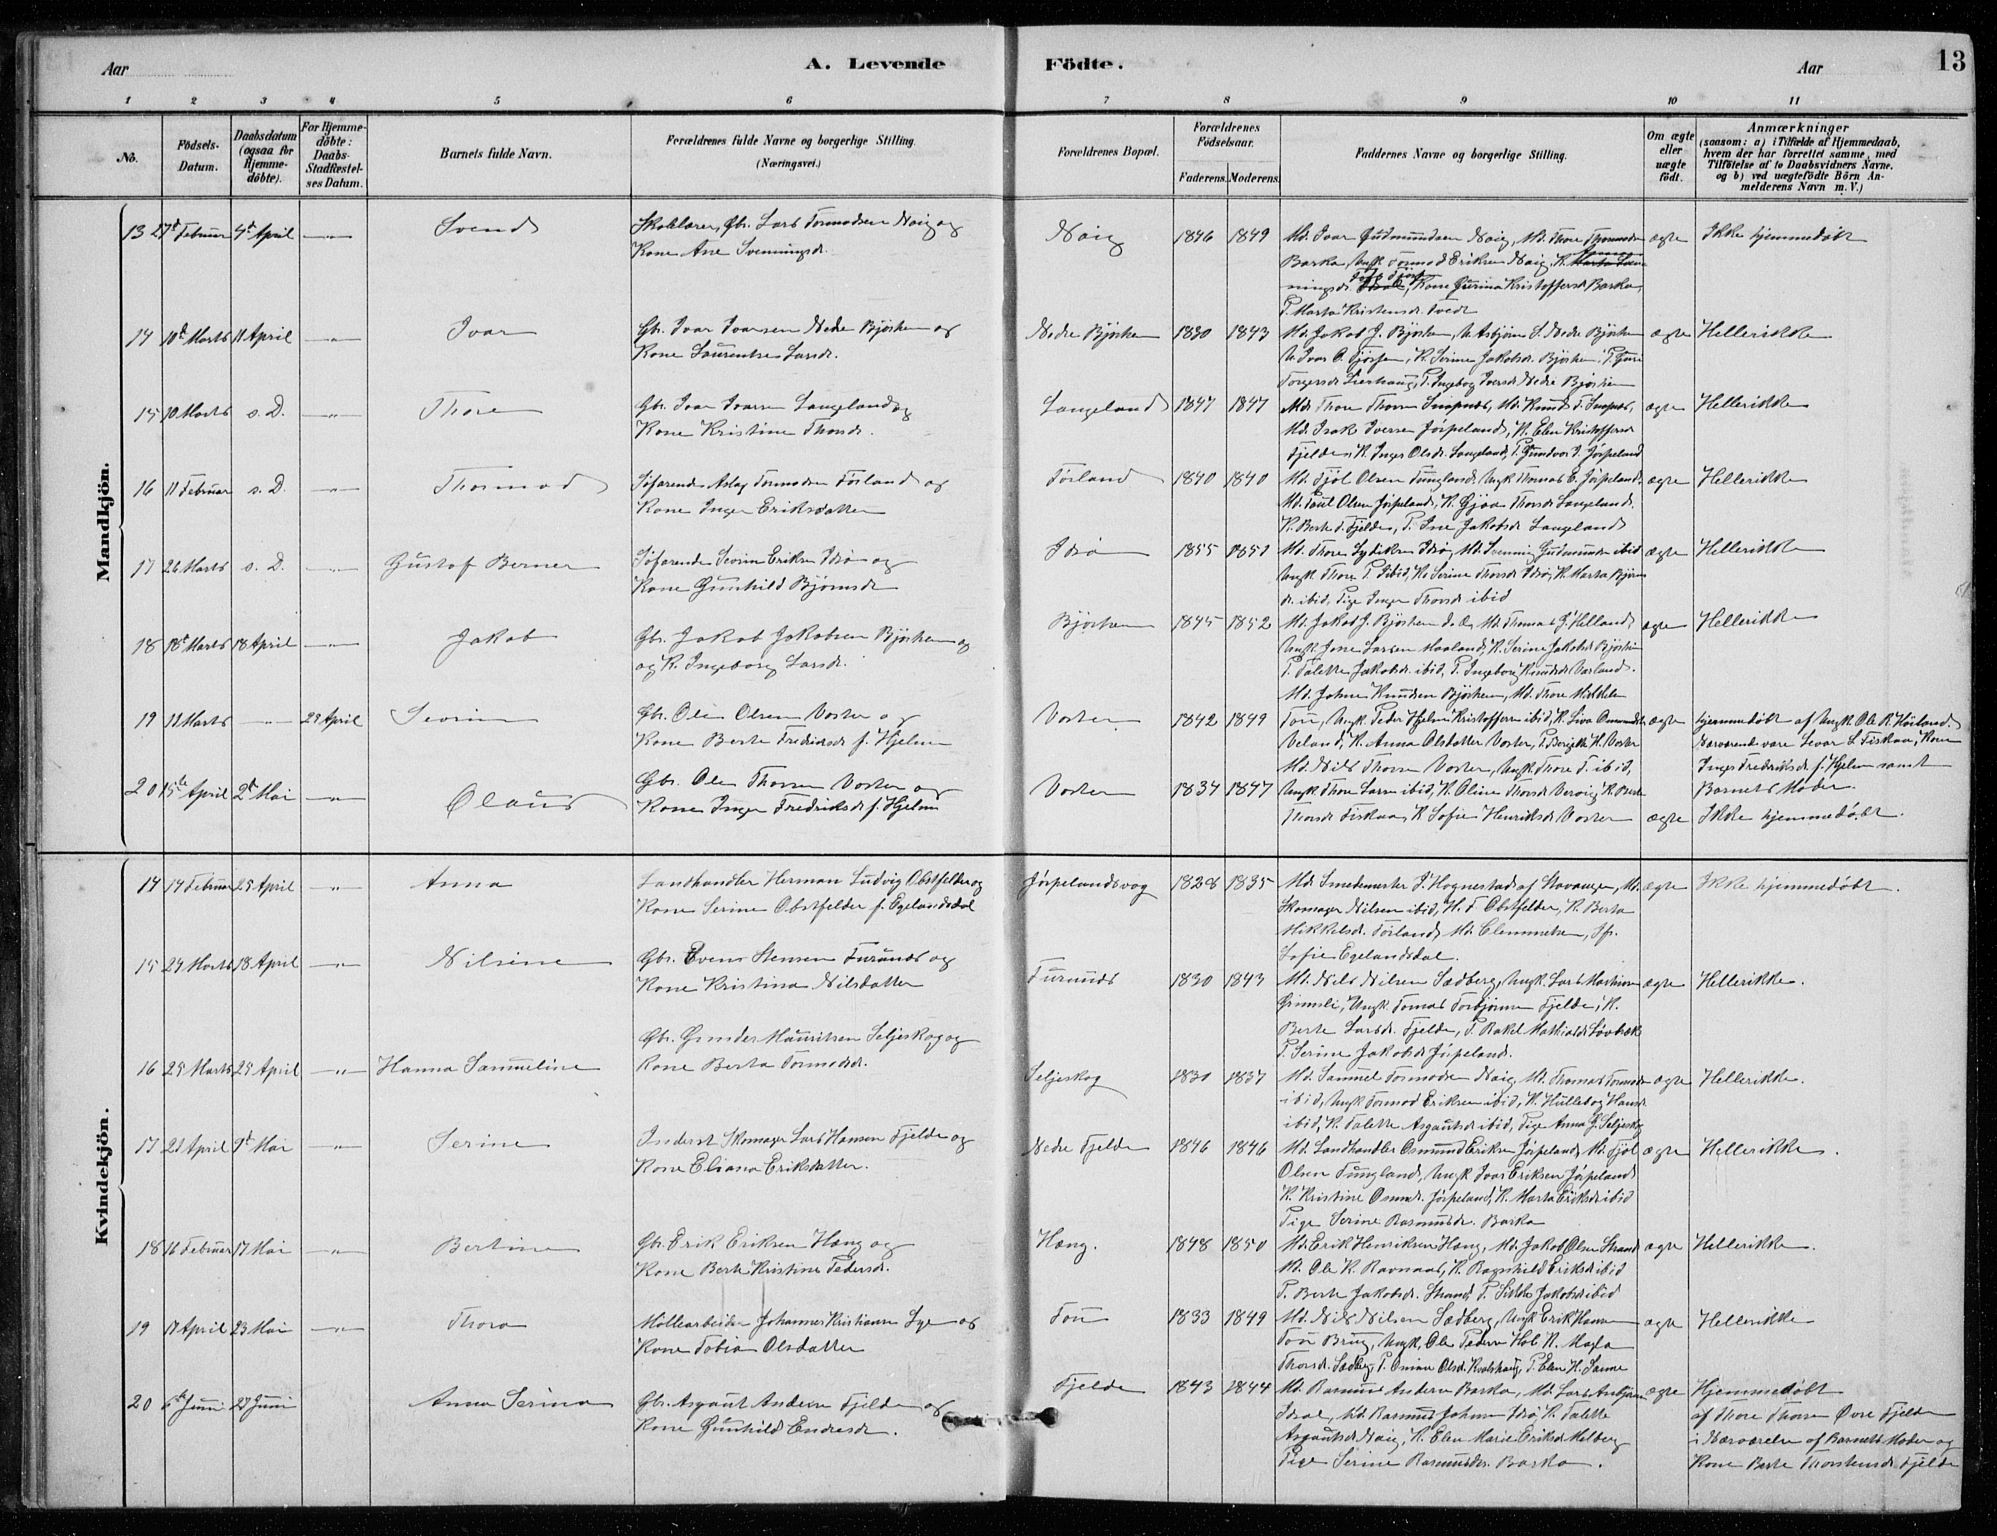 Aar
A. Levende
Födte.
Aar
13
1 2 3 4 5 6 7 8 9 10 11
No.
Födsels-Datum.
Daabsdatum (ogsaa for Hjemme-döbte).
For Hjemme-döbte: Daabs-Stadfæstel-ses Datum.
Barnets fulde Navn.
Forældrenes fulde Navne og borgerlige Stilling. (Næringsvei.)
Forældrenes Bopæl.
Forældrenes Födselsaar.
Faderens. Moderens.
Faddernes Navne og borgerlige Stilling.
Om ægte eller uægte födt.
Anmærkninger
(saasom: a) i Tilfælde af Hjemmedaab, hvem der har forrettet samme, med Tilföielse af to Daabsvidners Navne, og b) ved uægtefödte Börn An-melderens Navn m. V.)
Mandkjön.
13 27d Februar 4d April Svend
Skolelærer, Gbr. Lars Tormodsen Naig og
Kone Ane Svenningsdr.
Naig 1846 1849
Md. Ivar Gudmundsen Naig, Md. Thore Thormodsen
Barka, Ungk. Tormod Eriksen Naig, K.
Kone Gurina Kristoffersdr Barka,
P. Marta Kristensdr. Tvedt
ægte Ikke hjemmedøbt
14 10d Marts 11 April Ivar
Gbr. Ivar Ivarsen Nedre Bjørheim og
Kone Laurentse Larsdr.
Nedre Bjørheim 1830 1843
Md. Jakob J. Bjørheim, U. Asbjørn S. Nedre Bjørheim
ægte Hellerikke
15 10 Marts s. D. Thore
Gbr. Ivar Ivarsen Langeland og
Kone Kristine Thorsdr.
Langeland 1847 1847
Md. Isak Iversen Jørpeland, K. Elen Kristoffersdr
Fjelde, K. Inger Olsdr. Langeland, P. Gundvor I. Jørpeland
ægte Hellerikke
16 11 Februar s. D. Thormod
Söfarende Aslag Tormodsen Törland og
Kone Inger Eriksdatter
Törland 1840 1840
Md. Tjöl Olsen Tungland, Ungk Thomas E. Jørpeland,
Md. Paul Olsen Jørpeland, K. Gjoa Thorsdr Langeland,
K. Berte T. Fjelde, P. Ine Jakobsdr Langeland
ægte Hellerikke
17 26 Marts s. D. Gustof Berner
Söfarende Sevrin Eriksen Idsø og
Kone Gunhild Björnsdr
Idsø 1855 1851
Ungk Thore T. ibid, K. Serine Thorsdr Idsø, K. Marta Bjørns
dr. ibid, Pige Inger Thorsdr ibid
ægte Hellerikke
18 18d Marts 18 April Jakob
Gbr. Jakob Jakobsen Bjørheim og
og K. Ingeborg Larsdr.
Bjørheim 1845 1852
Ungk Jone Larsen Haaland, K. Serine Jakobsdr Bjørheim
P. Talette Jakobsdr ibid, P. Ingeborg Knudsdr Varland.
ægte Hellerikke
19 11 Marts 29 April Sevrin
Gbr. Ole Olsen Voster og
Kone Berte Fredriksdr f. Hjelm
Voster 1842 1849
Md. Johne Knudsen Bjørheim, Md. Thore
Tou, Ungk. Peder Hjelm Kristoffersen ibid, K. Siva
Veland, K. Anna Olsdatter Voster, P. Borgitte K. Voster
ægte hjemmedøbt af Ungk Ole K. Höiland.
Nærværende vare Sevar S. Fiskaa, Kone
Inger Fredriksdr f. Hjelm samt
Barnets Moder.
20 15de April 2d Mai Olaus
Gbr. Ole Thorsen Voster og
Kone Inger Fredriksdr f. Hjelm
Voster 1834 1847
Md. Nils Thorsen Voster, Ungk. Thore T. ibid,
Ungk Thore Larsen ibid, K. Oline Thorsdr Veraig, K. Berte
Thorsdr Fiskaa, K Sofie Henriksdr Voster
ægte Ikke hjemmedøbt.
Kvindekjön.
14 14 Februar 25 April Anna
Landhandler Herman Ludvig Obstfelder og
Kone Serine Obstfelder f. Egelandsdal
Jørpelandsvog 1828 1835
Md. Smedemester P. Hognestad af Stavanger, Md.
Skomager Nilsen ibid, H. T. Obstfelder, K. Berta
Mikkelsdr. Törland, Md. Clemmetsen, Jfr.
Sofie Egelandsdal.
ægte Ikke hjemmedøbt.
15 24 Marts 18 April Nilsine
Gbr. Even Stensen Furunes og
Kone Kristina Nilsdatter
1830 1843
Md. Nils Nilsen Sadberg, Ungk. Lars Martinsen
Grimsli, Ungk. Tomas Torbjørnsen Fjelde, K.
Berte Larsdr. Fjelde, P. Rakel Mathiasdr Løvbæk
P. Serine Jakobsdr Jørpeland.
ægte Hellerikke.
16 25 Marts 25 April Hanna Samueline
Gbr. Gunder Mauritsen Seljeskog og
Kone Berta Tormodsdr.
Seljeskog 1830 1837
Md. Samuel Tormodsen Naig, Md. Thomas Tormodsen
ibid, Ungk Tormod Eriksen ibid, K. Hulleborg Hansdr
ibid, K. Talette Asgautsdr ibid, Pige Anna G. Seljeskog
ægte Hellerikke.
17 21 April 9d Mai Serine
Inderst Skomager Lars Hansen Fjelde og
Kone Eliana Eriksdatter.
Nedre Fjelde 1846 1846
Md. Landhandler Osmund Eriksen Jørpeland, Md. Tjöl
Olsen Tungland, Ungk Ivar Eriksen Jørpeland
K. Kristine Osmdr. Jørpeland, K. Marta Eriksdr ibid
Pige Serine Rasmusdr. Barka
ægte Hellerikke.
18 16 Februar 17 Mai Bertine
Gbr. Erik Eriksen Hæng og
Kone Berte Kristine Pedersdr.
Hæng. 1848 1850
Md. Erik Henriksen Hæng, Md. Jakob Olsen Strand
Md. Ole K. Ravnaas, K. Ragnhild Eriksdr ibid
P. Berte Jakobsdr. Strand, P. Sille Jakobsdr ibid
ægte Hellerikke.
19 17 April 23 Mai Thora
Möllearbeider Johannes Kristiansen Lye og
Kone Tobia Olsdatter
Tou 1833 1849
Md. Nils Nilsen Sadberg, Ungk Erik Hansen
Tou Brug, Ungk, Ole Pedersen Hol K. Marta
Thorsdr. Sadberg
ægte Hellerikke
20 6te Juni 27 Juni Anna Serina
Gbr. Asgaut Andersen Fjelde og
Kone Gunhild Endresdr.
Fjelde 1843 1844
Md. Rasmus Andersen Barka, Md. Lars Asbjørnsen
Idsal, Md. Rasmus Johnsen Idsø, K. Talette
Asgautsdr Naig, K. Elen Marie Eriksdr Melberg
Pige Serine Rasmusdr. Barka.
ægte Hjemmedøbt
af Thore Thorsen Övre Fjelde
i Nærværelse af Barnets Moder og
Kone Berte Thorstensdr Fjelde